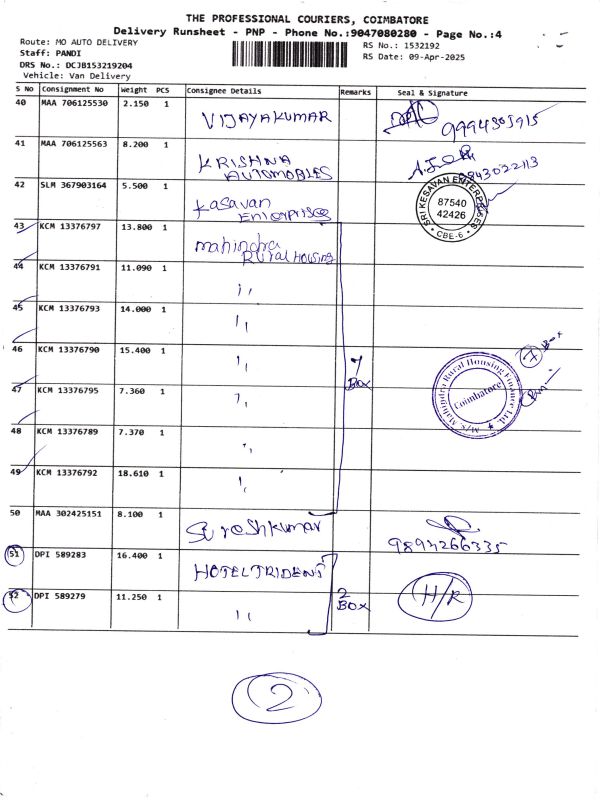 THE PROFESSIONAL COURIERS, COIMBATORE
Delivery Runsheet - PNP - Phone No.:9047080280 - Page No.:4
Route: MO AUTO DELIVERY
Staff: PANDI
DRS No.: DCJB153219204
Vehicle: Van Delivery
RS No.: 1532192
RS Date: 09-Apr-2025
S No Consignment No Weight PCS Consignee Details Remarks Seal & Signature
40 MAA 706125530 2.150 1 VIJAYAKUMAR
41 MAA 706125563 8.200 1 KRISHNA
AUTOMOBILES
42 SLM 367903164 5.500 1 Kasavan
Enterprises
SRI KESAVAN ENTERPRISES
87540
42426
CBE-6
43 KCM 13376797 13.800 1 mahindra
Rural Housing
44 KCM 13376791 11.090 1 ''
45 KCM 13376793 14.000 1 ''
46 KCM 13376790 15.400 1 ''
47 KCM 13376795 7.360 1 ''
7
Box
7 Box
M/s. Mahindra Rural Housing Finance Ltd.
Coimbatore
48 KCM 13376789 7.370 1 ''
49 KCM 13376792 18.610 1 ''
50 MAA 302425151 8.100 1 Sureshkumar
9894266335
51 DPI 589283 16.400 1 HOTEL TRIDENT
52 DPI 589279 11.250 1 ''
2
BOX
H/R
2